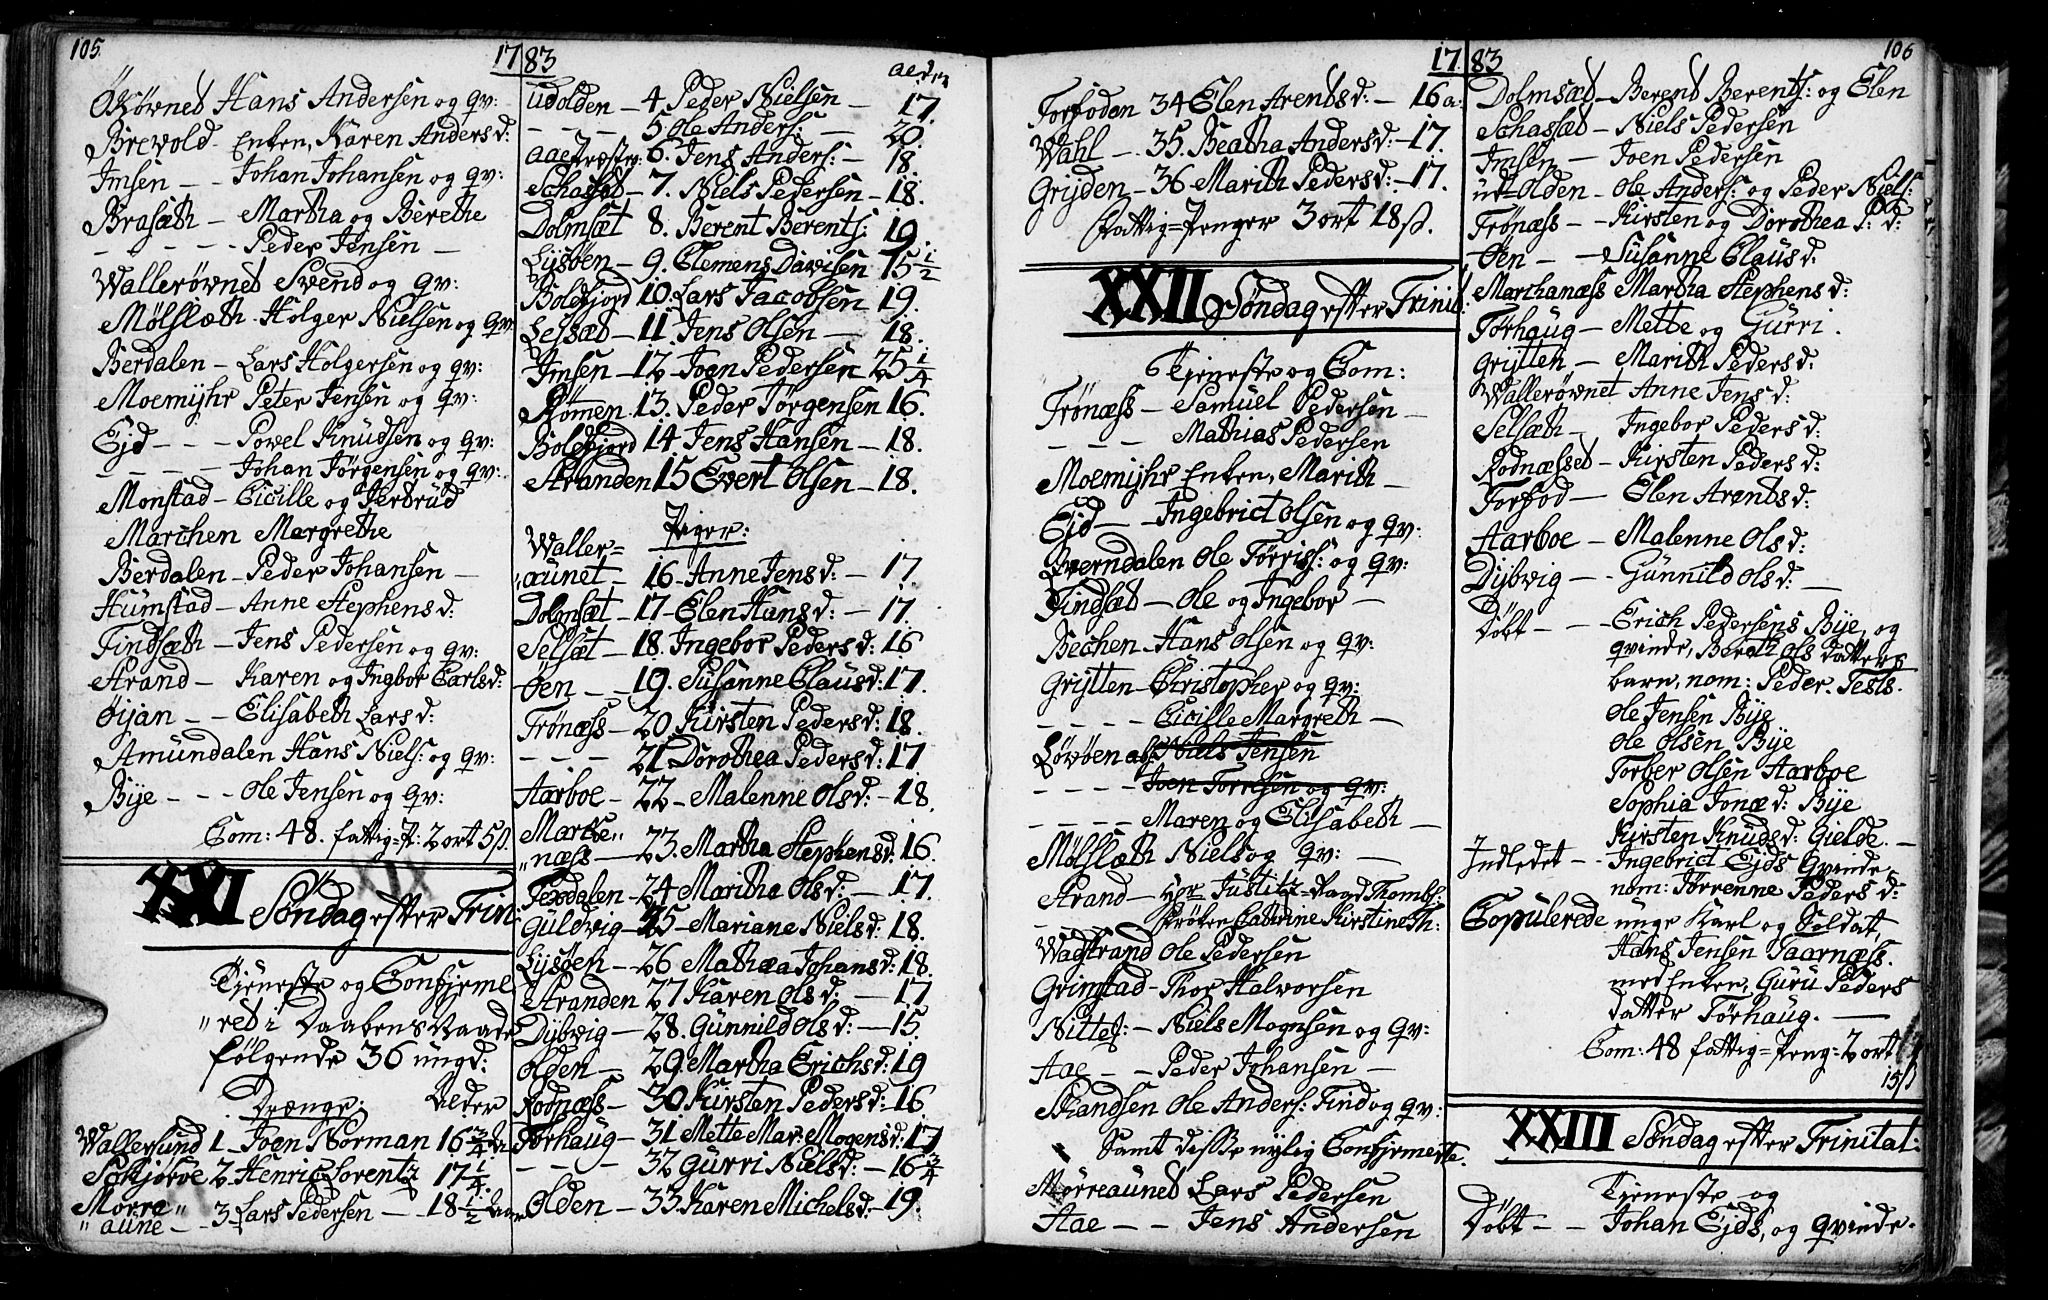 105.
17 83
Økøvned Hans Andersen og qv:
Brevold - Enken, Karen Anders d:
Imsen - - Johan Johansen og qv:
Brasæth - Martha og Berethe
- - - - Peder Jensen -
Wallerøvned Svend og qv:
Mølslæth - Holger Nielsen og qv:
Berdalen - Lars Holgersen og qv:
Moemyhr Peter Jensen og qv:
Ejd - - - Povel Knudsen og qv:
- - - - Johan Jørgensen og qv:
Monstad - Cicille og Jerbrud
Marchen Margrethe
Berdalen - Peder Johansen -
Humstad - Anne Stephens d:
Tindsæth - Jens Pedersen og qv:
Strand - Karen og Ingbor Carls d:
Øijan - - Elisabeth Lars d:
Amundalen Hans Niels: og qv:
Bije - - - Ole Jensen og qv:
Com: 48. fattig=P: 2 ort 5 ß.
XXI Søndag efter Trin:
Tjeneste og Confirme
"red i Daabens Naade
følgende 36 ungd:
Drænge: Alder
Wallersund 1 - Joen Norman 16 3/4
2. Henric Lorentz 17 1/4.
Morra"
"aune - 3 - Lars Pedersen - 18 1/2
alder
Udolden - 4 Peder Nielsen - 17.
- - - - 5. Ole Anders: - 20.
6. Jens Anders: - 18.
Schassæt - 7. Niels Pedersen - 18.
Dolmsæt 8. Berent Berents: 19.
Lysøen - 9. Clemens Davisen 15 1/2
Bolefjord 10. Lars Jacobsen 19.
Lejsæt - 11. Jens Olsen - 18.
Imsen - 12 - Joen Pedersen 25 1/4
Rømmen 13. Peder Jørgensen 16.
Bolefjord 14 Jens Hansen - 18.
Stranden 15 Evert Olsen - 18.
Piger:
Waller=
"aunet - 16 - Anne Jens d: - 17.
Dolmsæt - 17 - Elen Hans d: - 17.
Selsæt - 18. Ingebor Peders d: 16
Øen - - 19. Susanne Claus d: 17.
Trønæss - 20. Kirsten Peders d: 18.
- - - - 21 Dorothea Peders d: 17
Aarboe - 22 - Malenne Ols d: - 18.
Marche"
"næss - 23. Martha Stephens d: 16.
24 Maritha Ols d: - 17.
Guldvig - 25 - Mariane Niels d: 18.
Lysøen - 26 Mathæa Johans d: 18.
Stranden 27 Karen Ols d: - 17
Dybvig - 28. Gunnild Ols d: - 15.
Olden - 29. Martha Erichs d: 19
Rodnæss - 30 Kirsten Peders d: 16
Torhaug - 31 Mette Mar: Mogens d: 17
- - - - 32 Gurri Niels d: - 16 3/4
Olden - 33. Karen Michels d: - 19.
17 83
106
Forfoden 34 Elen Arents d: - 16 a:
Wahl - 35. Beatha Anders d: - 17.
Gryden - 36 Marith Peders d: - 17.
Fattig=Penger 3 ort 18 ß.
XXII Søndag efter Trinit:
Tjeneste og Com:
Trønæss - Samuel Pedersen -
- - - Mathias Pedersen
Moemyhr Enken, Marith -
Ejd - - Ingebrict Olsen og qv:
Qverndalen Ole Tørris: og qv:
Tindsæt - Ole og Ingebor -
Bechen - Hans Olsen og qv:
Grytten - Christopher og qv:
- - - - Cicille Margreth -
Løvøen Niels Jensen
- - - - Joen Torresen og qv:
- - - - Maren og Elisabeth -
Mølslæth Niels og qv: -
Strand - Hor Justitz=Raad Thombs:
Frøken Cathrine Kirstine Th:
Wagstrand Ole Pedersen
Grimstad - Thor Halvorsen
Nittes: - Niels Mognsen og qv:
Aae - - Peder Johansen -
Skandsen Ole Anders: Tind og qv:
Samt disse nylig Confirmerte.
Mørreauned Lars Pedersen
Aae - - Jens Andersen
Dolmsæt - Berent Berents: og Elen
Schassæt - Niels Pedersen
Imsen - Joen Pedersen
ud=Olden - Ole Anders: og Peder Niels:
Trønæss - Kirsten og Dorothea P: d:
Øen - - Susanne Claus d.
Marchanæss Martha Stephens d:
Torhaug - Mette og Gurri.
Grytten - Marith Peders d:
Wallerøvnet Anne Jens d:
Selsæth - Ingebor Peders d:
Rodnæsset - Kirsten Peders d:
Forfod - Elen Arents d:
Aarboe - Malenne Ols d:
Dybvig - - Gunnild Ols d: -
Døbt - - Erich Pedersens Bije, og
qvinde, Berath Ols datters
barn, nom: Peder. Tests.
Ole Jensen Bije
Ole Olsen Bije
Torber Olsen Aarboe
Sophia Jonæ d: Bije
Kirsten Knuds d: Gielde. -
Indledet - Ingebrict Ejds Qvinde,
nom: Tørrenne Peders d:
Copulerede unge Karl og Soldat,
Hans Jensen Taarnæss.
med Enken, Guru Peders
datter Torhaug. -
Com: 48 fattig=Peng: 2 ort
15 ß
XXIII Søndag efter Trinitat:
Tjeneste og
Døbt - - Johan Ejds, og qvinde.